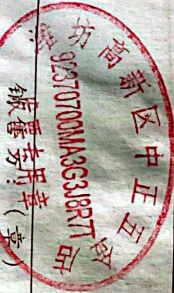 潍坊高新区中正五金店
92370700MA3G318R7T
发票专用章
销售方:(章)